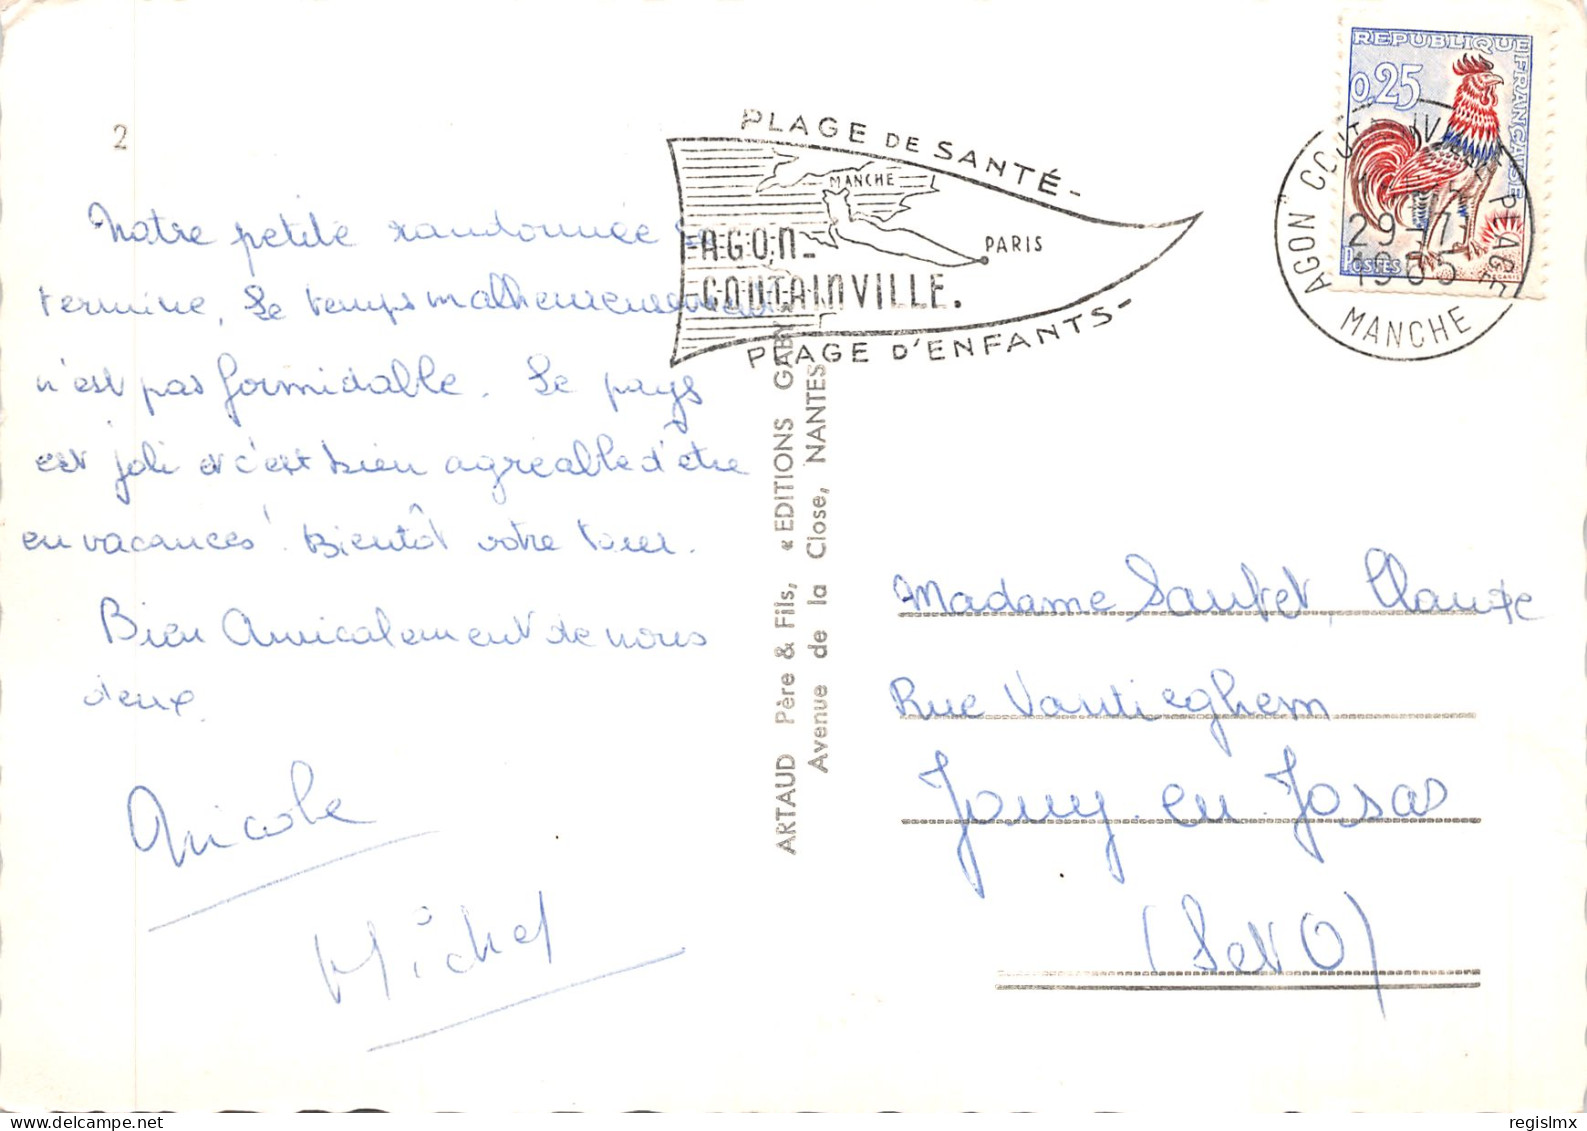 2
Notre petite randonnée se
termine. Le temps malheureusement
n'est pas formidable. Le pays
est joli et c'est bien agréable d'être
en vacances! Bientôt votre tour.
Bien Amicalement de nous
deux.
Nicole
Michel
ARTAUD Père & Fils, «EDITIONS GABY»
Avenue de la Close, NANTES
PLAGE DE SANTÉ-
MANCHE
PARIS
AGON-
COUTAINVILLE.
PLAGE D'ENFANTS-
REPUBLIQUE FRANÇAISE
0,25
POSTES
AGON COUTAINVILLE PLAGE
29-7
1965
MANCHE
Madame Sautet Claude
Rue Vantieghem
Jouy-en-Josas
(S et O)
regislmx